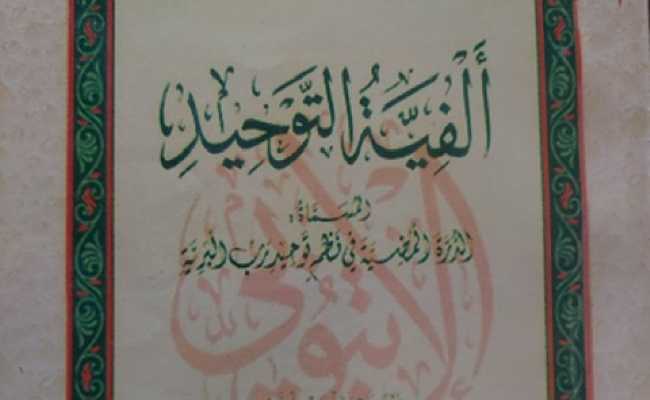 أَلْفِيَّةُ التَّوْحِيدِ
المسماة:
الدرة المضية في نظم توحيد رب البرية